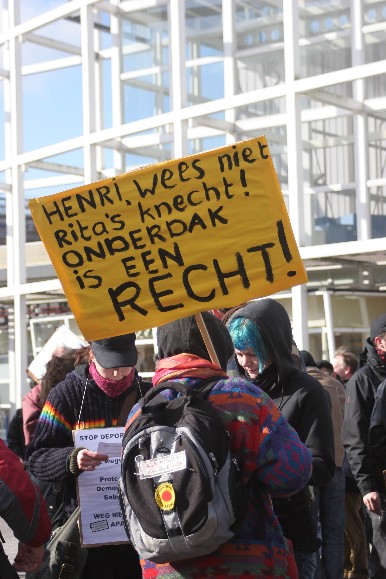 HENRI, wees niet
Rita's knecht!
ONDERDAK
is EEN
RECHT!
STOP DEPOR
Demo
WEG ME